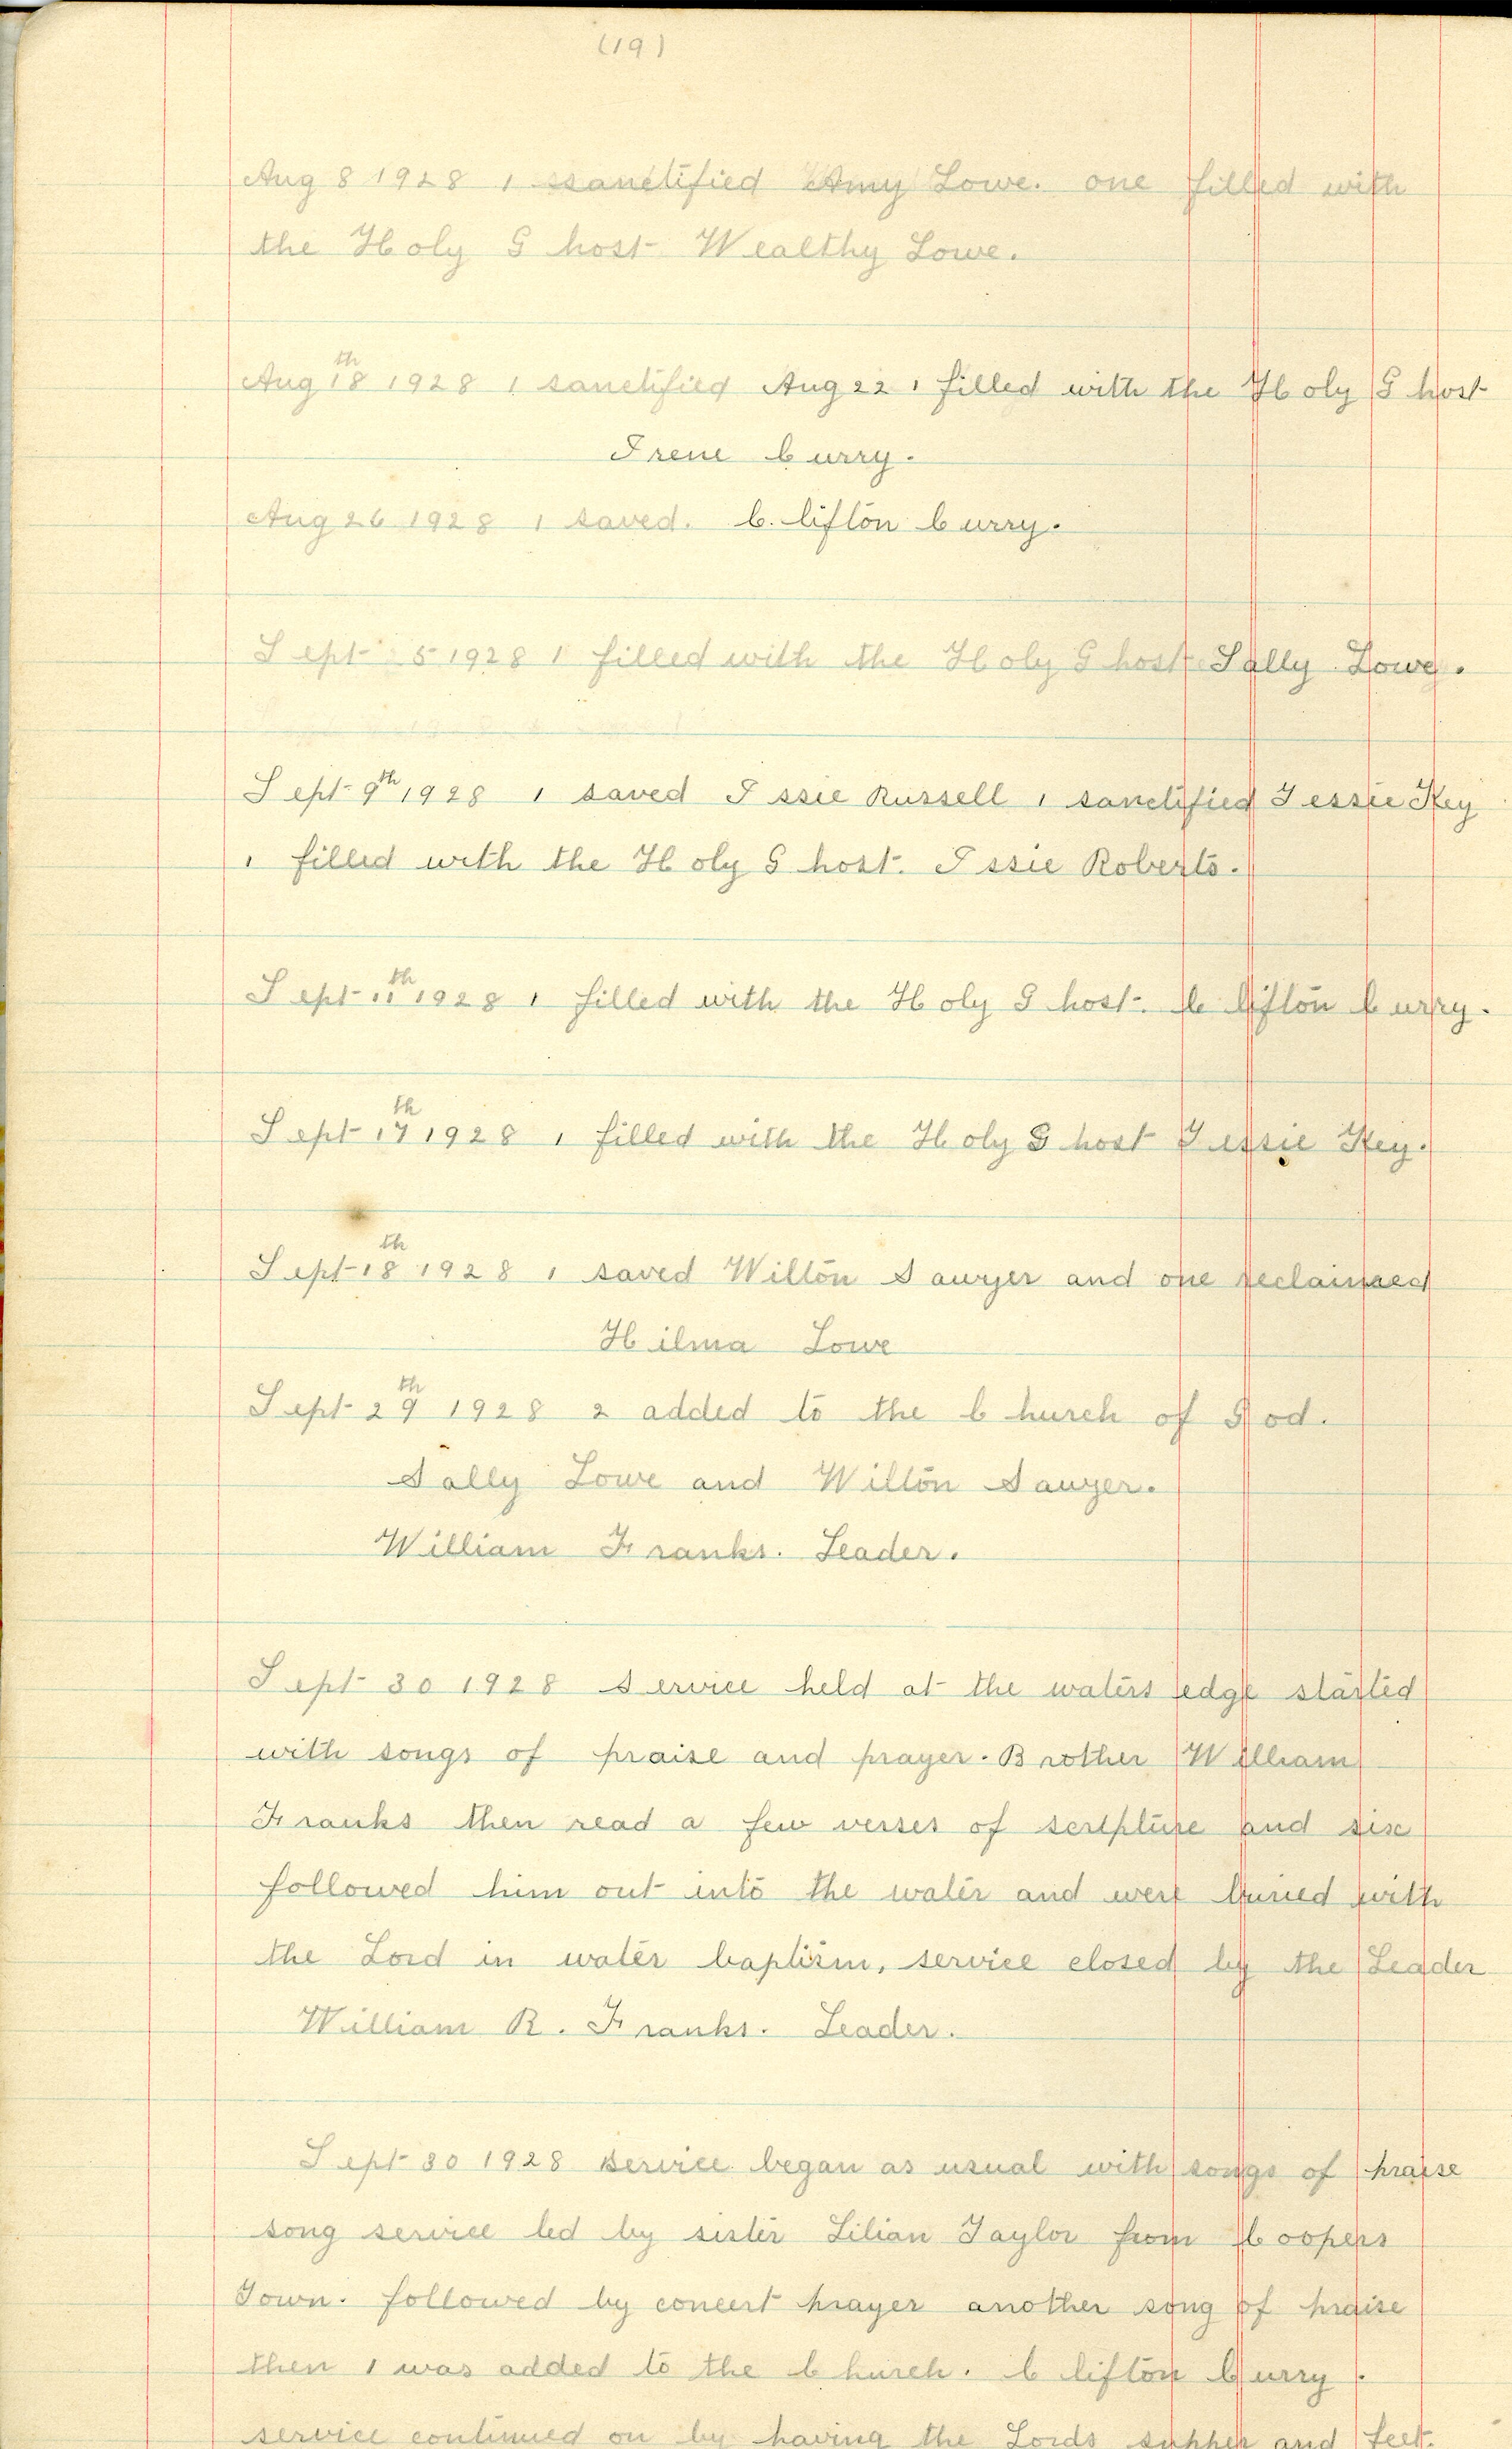 (19)
Aug 8 1928 1 sanctified Amy Lowe. one filled with
the Holy Ghost Wealthy Lowe.
Aug 18th 1928 1 sanctified Aug 22 1 filled with the Holy Ghost
Irene Curry.
Aug 26 1928 1 saved. C. lifton Curry.
Sept 5 1928 1 filled with the Holy Ghost Sally Lowe.
Sept 9th 1928 1 saved Issie Russell 1 sanctified Jessie Key
1 filled with the Holy Ghost. Issie Roberts.
Sept 11th 1928 1 filled with the Holy Ghost. Clifton Curry.
Sept 17th 1928 1 filled with the Holy Ghost Jessie Key.
Sept 18th 1928 1 saved Wilton Sawyer and one reclaimed
Hilma Lowe
Sept 29th 1928 2 added to the Church of God.
Sally Lowe and Wilton Sawyer.
William Franks. Leader.
Sept 30 1928 Service held at the waters edge started
with songs of praise and prayer. Brother William
Franks then read a few verses of scripture and six
followed him out into the water and were buried with
the Lord in water baptism, service closed by the Leader
William R. Franks. Leader.
Sept 30 1928 service began as usual with songs of praise
song service led by sister Lilian Taylor from Coopers
Town. followed by concert prayer another song of praise
then 1 was added to the Church. Clifton Curry.
service continued on by having the Lords supper and feet.